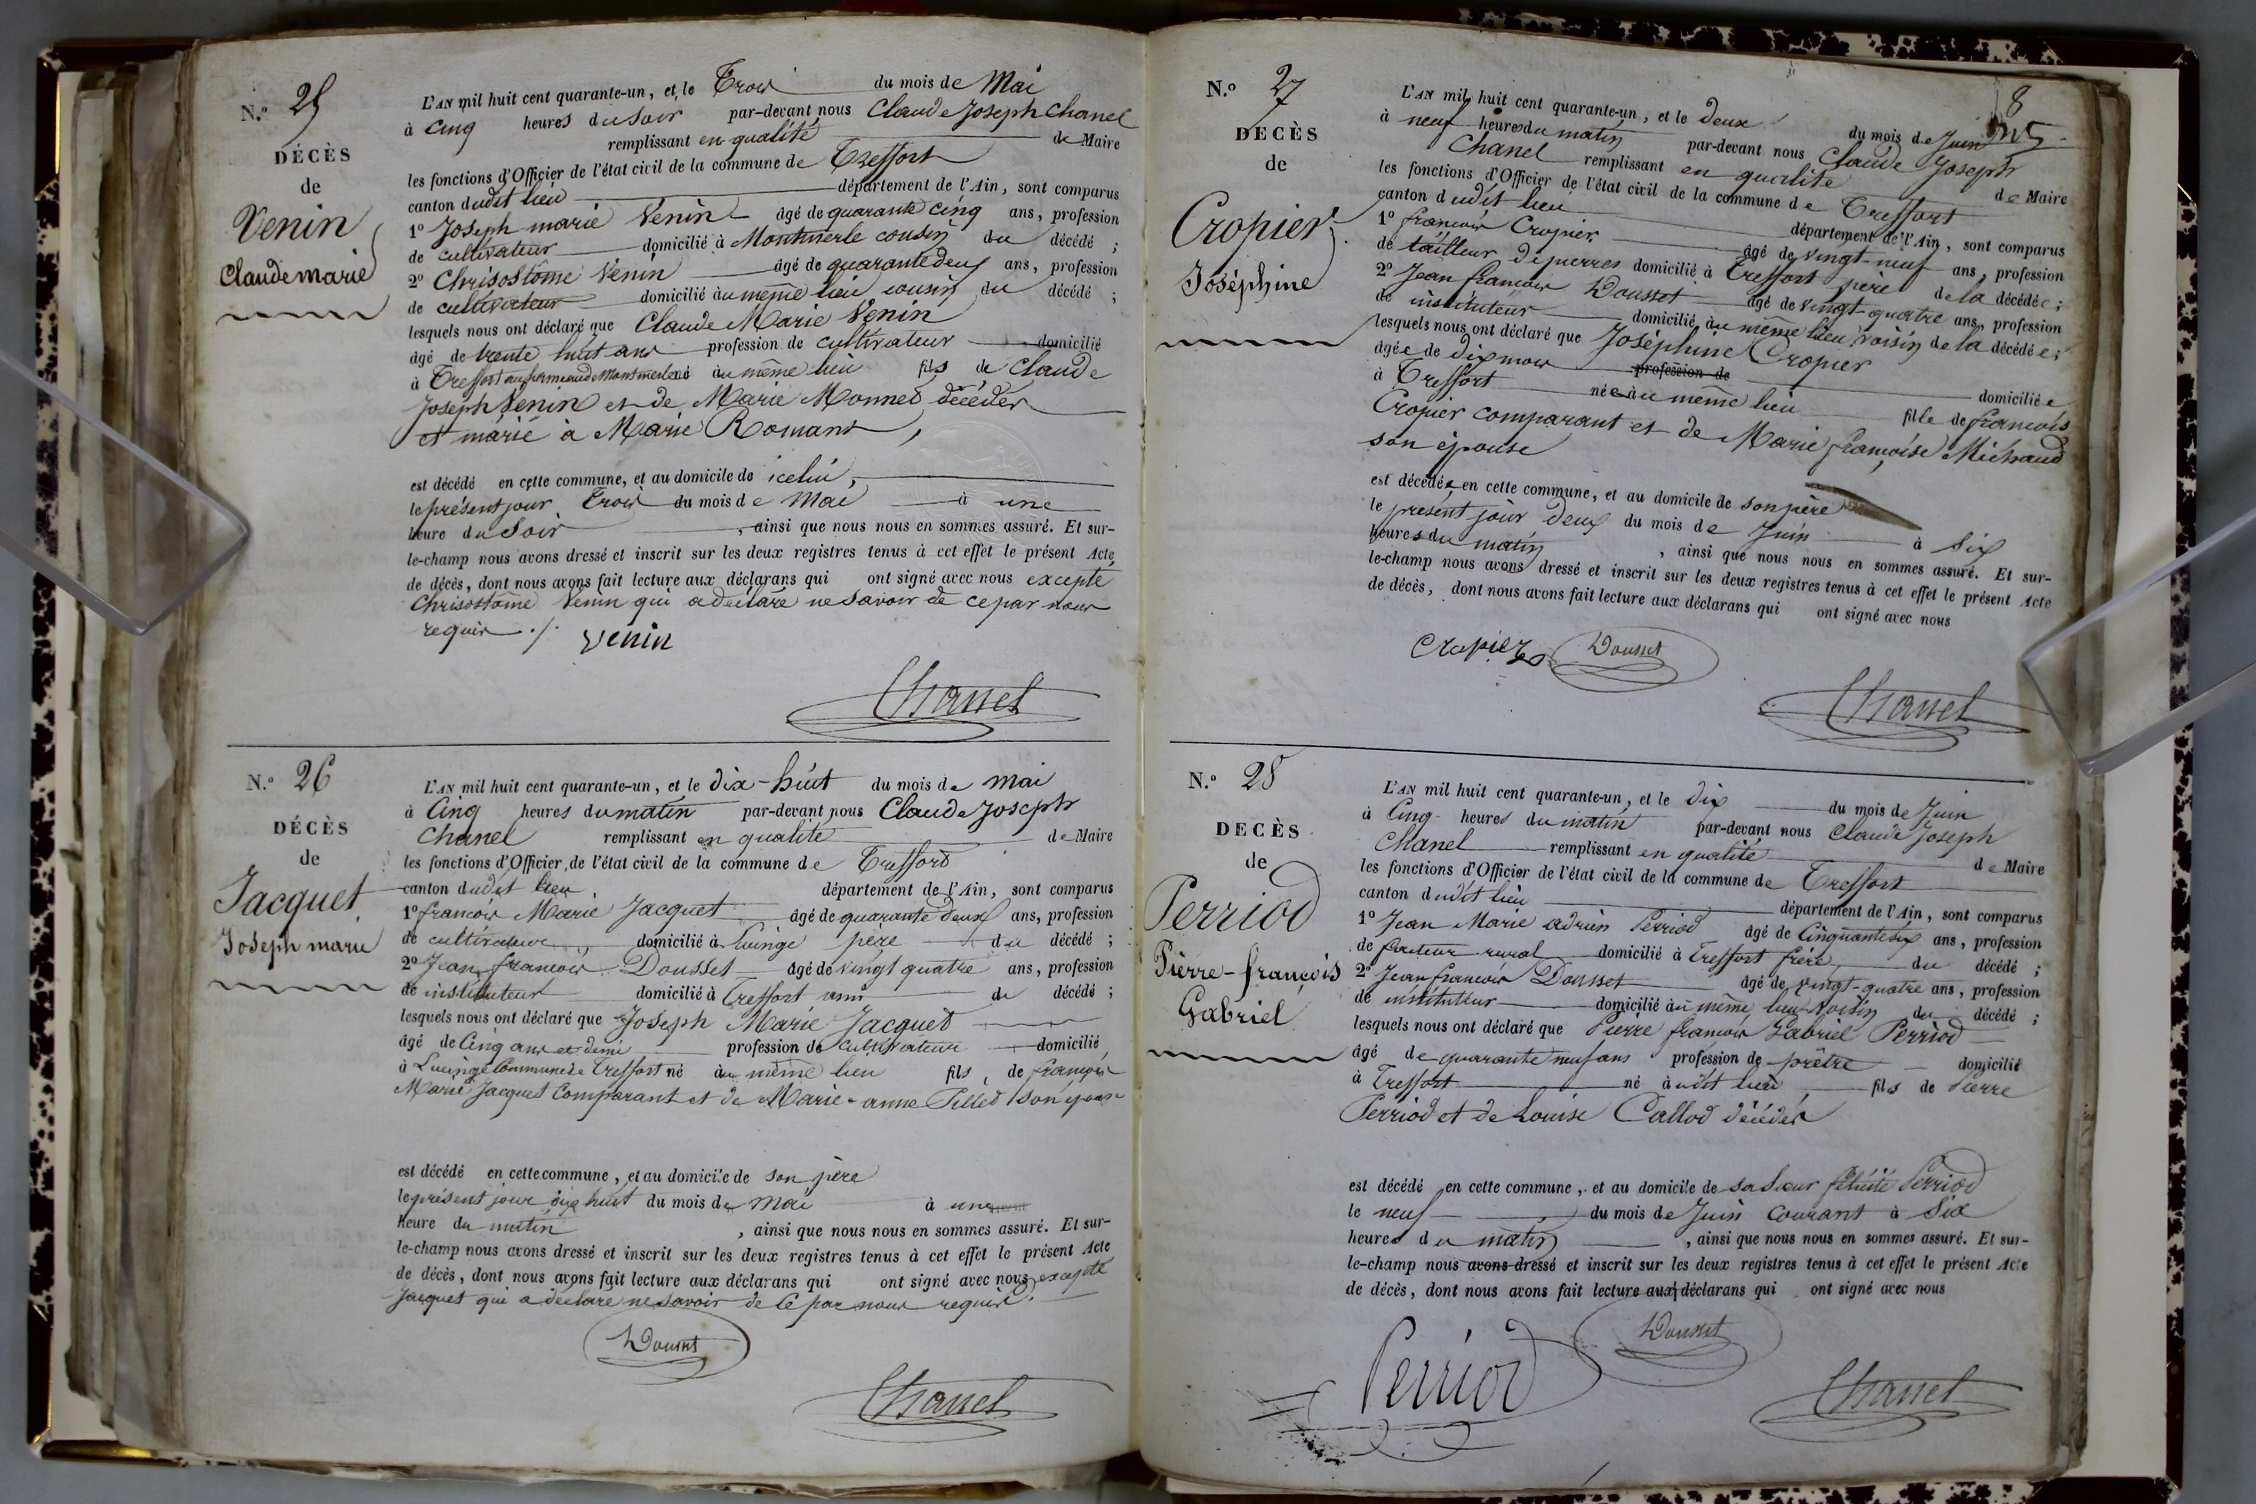 N.º 25
DÉCÈS
de
Venin
Claude marie
L'AN mil huit cent quarante-un, et le Trois du mois de Mai
à Cinq heures du soir par-devant nous Claude Joseph Chanel
remplissant en qualité de Maire
les fonctions d'Officier de l'état civil de la commune de Treffort
canton dudit lieu département de l'Ain, sont comparus
1º Joseph marie Venin âgé de quarante cinq ans, profession
de cultivateur domicilié à Montmerle cousin du décédé ;
2º Chrisostôme Venin âgé de quarante deux ans, profession
de cultivateur domicilié au même lieu cousin du décédé ;
lesquels nous ont déclaré que Claude Marie Venin
âgé de trente huit ans profession de cultivateur domicilié
à Treffort au hameau de Montmerle né au même lieu fils de Claude
Joseph Venin et de Marie Monnet décédés
et marié à Marie Romans,
est décédé en cette commune, et au domicile de icelui,
le présent jour Trois du mois de Mai à une
heure du Soir, ainsi que nous nous en sommes assuré. Et sur-
le-champ nous avons dressé et inscrit sur les deux registres tenus à cet effet le présent Acte
de décès, dont nous avons fait lecture aux déclarans qui ont signé avec nous excepté
Chrisostôme Venin qui a déclaré ne savoir de ce par nous
requis ./.
Venin
Chanel
N.º 26
DÉCÈS
de
Jacquet
Joseph marie
L'AN mil huit cent quarante-un, et le dix-huit du mois de mai
à Cinq heures du matin par-devant nous Claude Joseph
Chanel remplissant en qualité de Maire
les fonctions d'Officier de l'état civil de la commune de Treffort
canton dudit lieu département de l'Ain, sont comparus
1º françois Marie Jacquet âgé de quarante deux ans, profession
de cultivateur domicilié à Lucinge père du décédé ;
2º Jean françois Dousset âgé de vingt quatre ans, profession
de instituteur domicilié à Treffort ami du décédé ;
lesquels nous ont déclaré que Joseph Marie Jacquet
âgé de Cinq ans et demi profession de cultivateur domicilié
à Lucinge Commune de Treffort né au même lieu fils de françois
Marie Jacquet Comparant et de Marie-anne Pillet son épouse
est décédé en cette commune, et au domicile de son père
le présent jour dix huit du mois de mai à une
heure du matin, ainsi que nous nous en sommes assuré. Et sur-
le-champ nous avons dressé et inscrit sur les deux registres tenus à cet effet le présent Acte
de décès, dont nous avons fait lecture aux déclarans qui ont signé avec nous excepté
Jacquet qui a déclaré ne savoir de ce par nous requis.
Dousset
Chanel
8
N.º 27
DECÈS
de
Cropier
Joséphine
L'AN mil huit cent quarante-un, et le deux du mois de Juin
à neuf heures du matin par-devant nous Claude Joseph
Chanel remplissant en qualité de Maire
les fonctions d'Officier de l'état civil de la commune de Treffort
canton dudit lieu département de l'Ain, sont comparus
1º françois Cropier âgé de vingt-neuf ans, profession
de tailleur de pierres domicilié à Treffort père de la décédée ;
2º Jean françois Dousset âgé de vingt-quatre ans, profession
de instituteur domicilié au même lieu voisin de la décédée ;
lesquels nous ont déclaré que Joséphine Cropier
âgée de dix mois profession de domiciliée
à Treffort née au même lieu fille de françois
Cropier comparant et de Marie françoise Michaud
son épouse
est décédée en cette commune, et au domicile de son père
le présent jour deux du mois de Juin à Six
heures du matin, ainsi que nous nous en sommes assuré. Et sur-
le-champ nous avons dressé et inscrit sur les deux registres tenus à cet effet le présent Acte
de décès, dont nous avons fait lecture aux déclarans qui ont signé avec nous
Cropier Dousset
Chanel
N.º 28
DECÈS
de
Perriod
Pierre-françois
Gabriel
L'AN mil huit cent quarante-un, et le dix du mois de Juin
à Cinq heures du matin par-devant nous Claude Joseph
Chanel remplissant en qualité de Maire
les fonctions d'Officier de l'état civil de la commune de Treffort
canton dudit lieu département de l'Ain, sont comparus
1º Jean Marie adrien Perriod âgé de Cinquante six ans, profession
de facteur rural domicilié à Treffort frère du décédé ;
2º Jean françois Dousset âgé de vingt-quatre ans, profession
de instituteur domicilié au même lieu voisin du décédé ;
lesquels nous ont déclaré que Pierre françois Gabriel Perriod
âgé de quarante neuf ans profession de prêtre domicilié
à Treffort né audit lieu fils de Pierre
Perriod et de Louise Callod décédés
est décédé en cette commune, et au domicile de sa sœur félicité Perriod
le neuf du mois de Juin courant à Six
heures du matin, ainsi que nous nous en sommes assuré. Et sur-
le-champ nous avons dressé et inscrit sur les deux registres tenus à cet effet le présent Acte
de décès, dont nous avons fait lecture aux déclarans qui ont signé avec nous
Perriod Dousset
Chanel